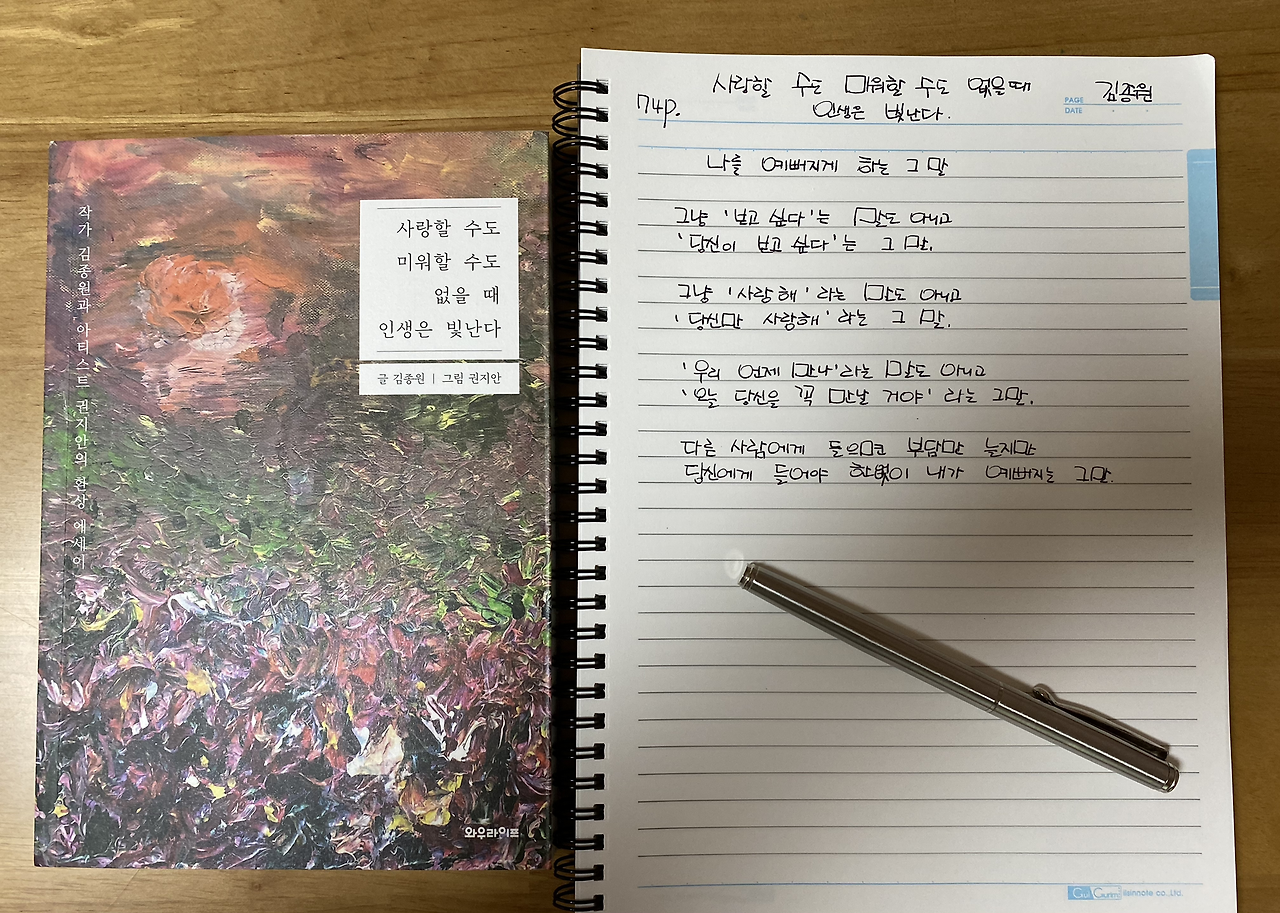 작가 김종원과 아티스트 권지안의 환상 에세이
사랑할 수도
미워할 수도
없을 때
인생은 빛난다
글 김종원 | 그림 권지안
와우라이프
사랑할 수도 미워할 수도 없을때
인생은 빛난다.
74p.
PAGE
DATE
김종원
나를 예뻐지게 하는 그 말
그냥 '보고 싶다'는 말도 아니고
'당신이 보고 싶다'는 그 말.
그냥 '사랑해'라는 말도 아니고
'당신만 사랑해'라는 그 말.
'우리 언제 만나'라는 말도 아니고
'오늘 당신을 꼭 만날 거야'라는 그말.
다른 사람에게 들으면 부담만 늘지만
당신에게 들어야 한없이 내가 예뻐지는 그말.
ilsinnote co.,Ltd.